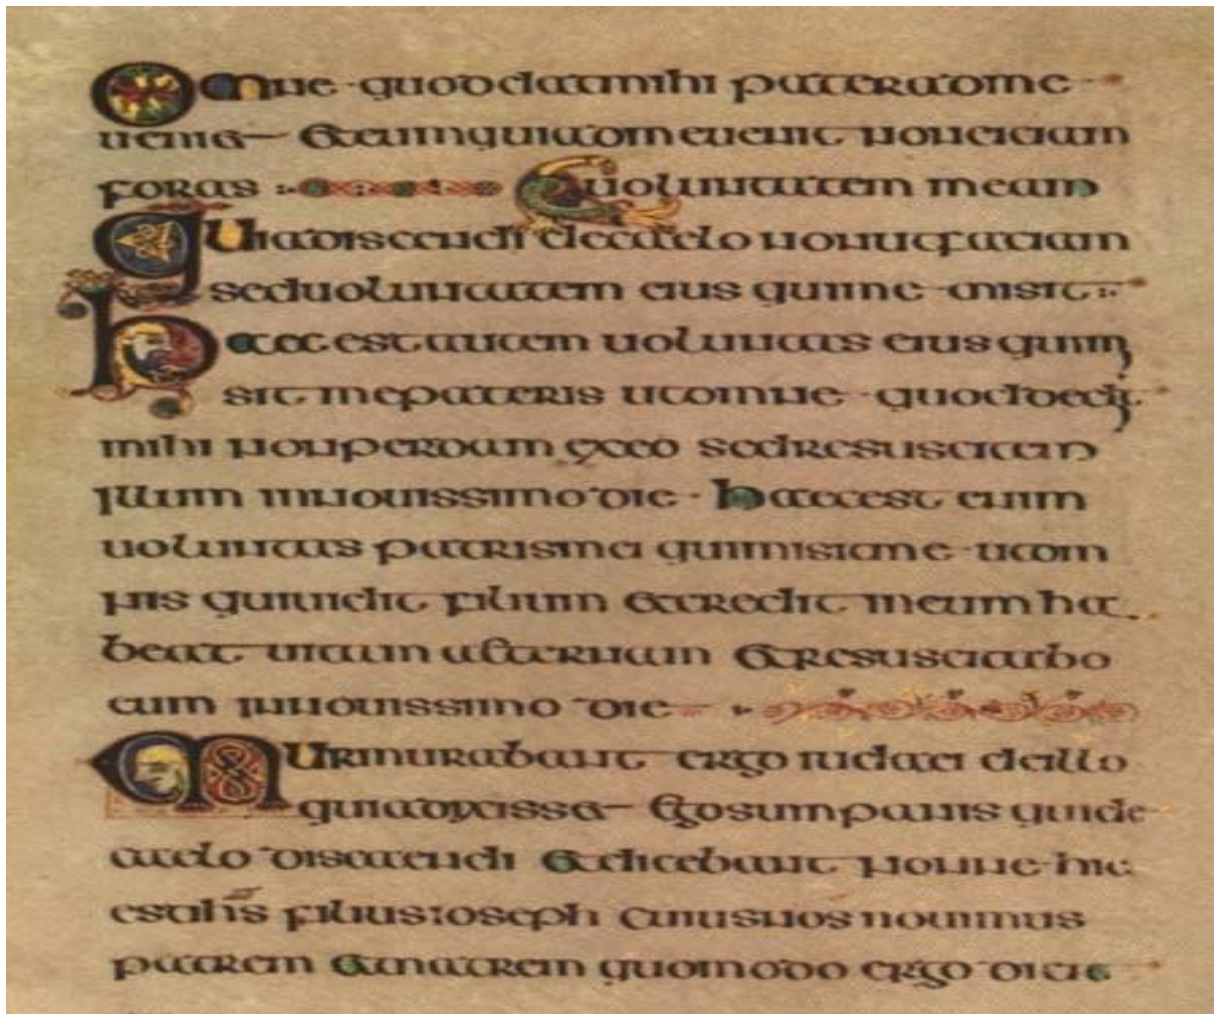 Omne quod dat mihi pater ad me
ueniet Et eum qui ad me uenit non eiciam
foras uoluntatem meam
quia discendi de caelo non ut faciam
sed uoluntatem eius qui me misit
haec est autem uoluntas eius qui m
sit me pateris ut omne quod dedit
mihi non perdam ex eo sed resuscitem
illum in nouissimo die haec est enim
uoluntas patris mei qui misit me ut om
nis qui uidit filium et credit in eum ha
beat uitam aeternam Et resuscitabo
eum in nouissimo die
Murmurabant ergo iudaei de illo
quia dixisset Ego sum panis qui de
caelo discendi Et dicebant nonne hic
est ihs filius ioseph cuius nos nouimus
patrem et matrem quomodo ergo dicit